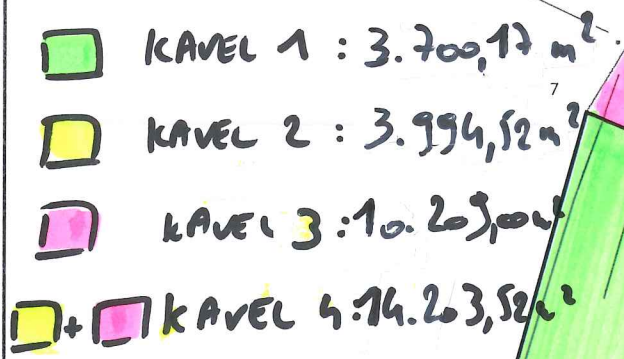 KAVEL 1 : 3.700,17 m².
7
KAVEL 2 : 3.994,52 m²
KAVEL 3 : 10.209,00 m²
+ KAVEL 4 : 14.203,52 m²